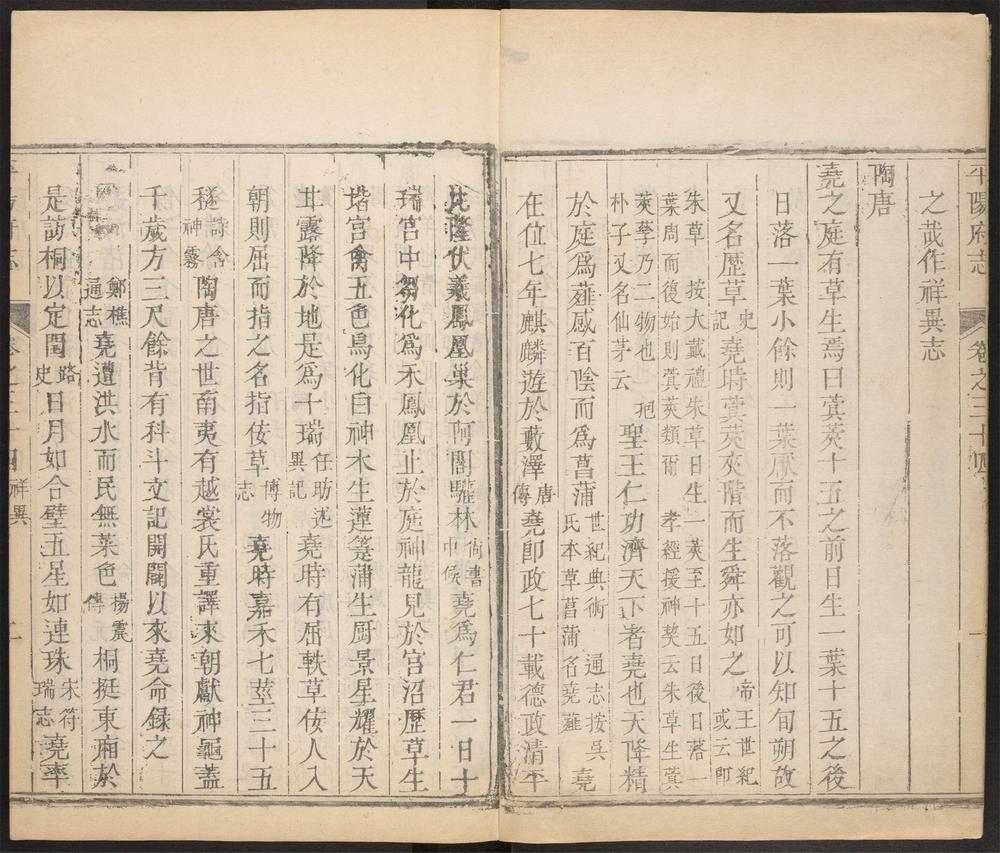 平陽府志
卷之三十四
一
之哉作祥異志
陶唐
堯之庭有草生焉曰蓂莢十五之前日生一葉十五之後
日落一葉小餘則一葉厭而不落觀之可以知旬朔故
又名歷草史記堯時蓂莢夾階而生舜亦如之帝王世紀或云即
朱草 按大戴禮朱草日生一莢至十五日後日落一
葉周而復始則蓂莢類爾 孝經援神契云朱草生蓂
莢孳乃二物也 抱
朴子又名仙茅云
聖王仁功濟天下者堯也天降精
於庭爲薤感百陰而爲菖蒲世紀典術 通志按吳氏本草菖蒲名堯薤 堯
在位七年麒麟遊於藪澤唐傳堯即政七十載德政清平
比隆伏羲鳳凰巢於阿閣驩林尚書中候堯爲仁君一日十
瑞宮中芻化爲禾鳳凰止於庭神龍見於宮沼歷草生
堦宮禽五色鳥化白神木生蓮箑蒲生厨景星耀於天
甘露降於地是爲十瑞任昉述異記堯時有屈軼草佞人入
朝則屈而指之名指佞草博物志堯時嘉禾七莖三十五
穟詩含神霧陶唐之世南夷有越裳氏重譯來朝獻神龜蓋
千歲方三尺餘背有科斗文記開闢以來堯命録之
鄭樵通志堯遭洪水而民無菜色楊震傳桐挺東廂於
是訪桐以定閏路史日月如合璧五星如連珠宋符瑞志堯率
祥異
二